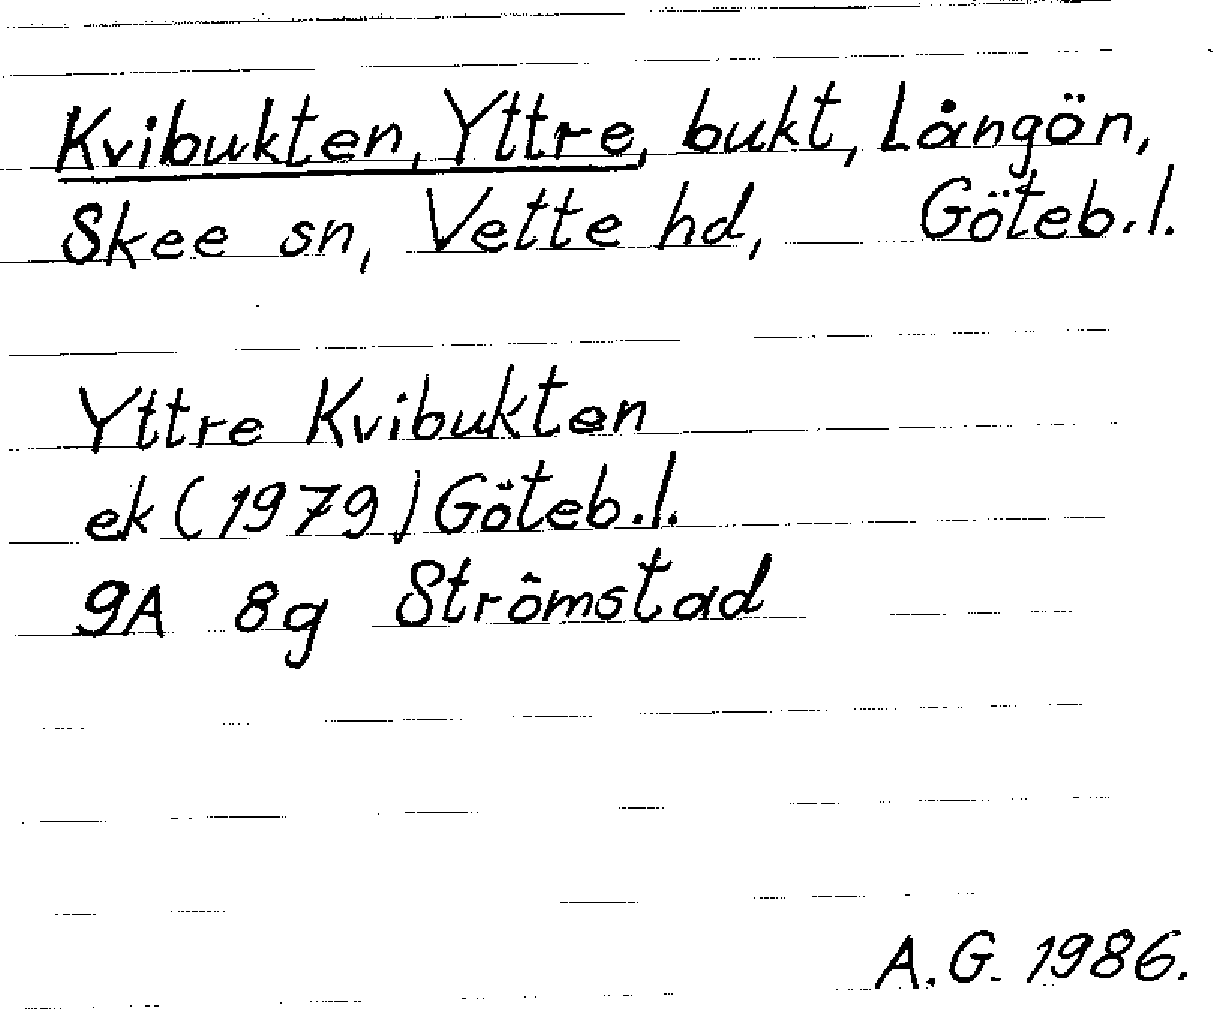 Kvibukten, Yttre, bukt, Långön,
Skee sn, Vette hd, Göteb.l.
Yttre Kvibukten
ek (1979) Göteb.l.
9A 8g Strömstad
A.G. 1986.